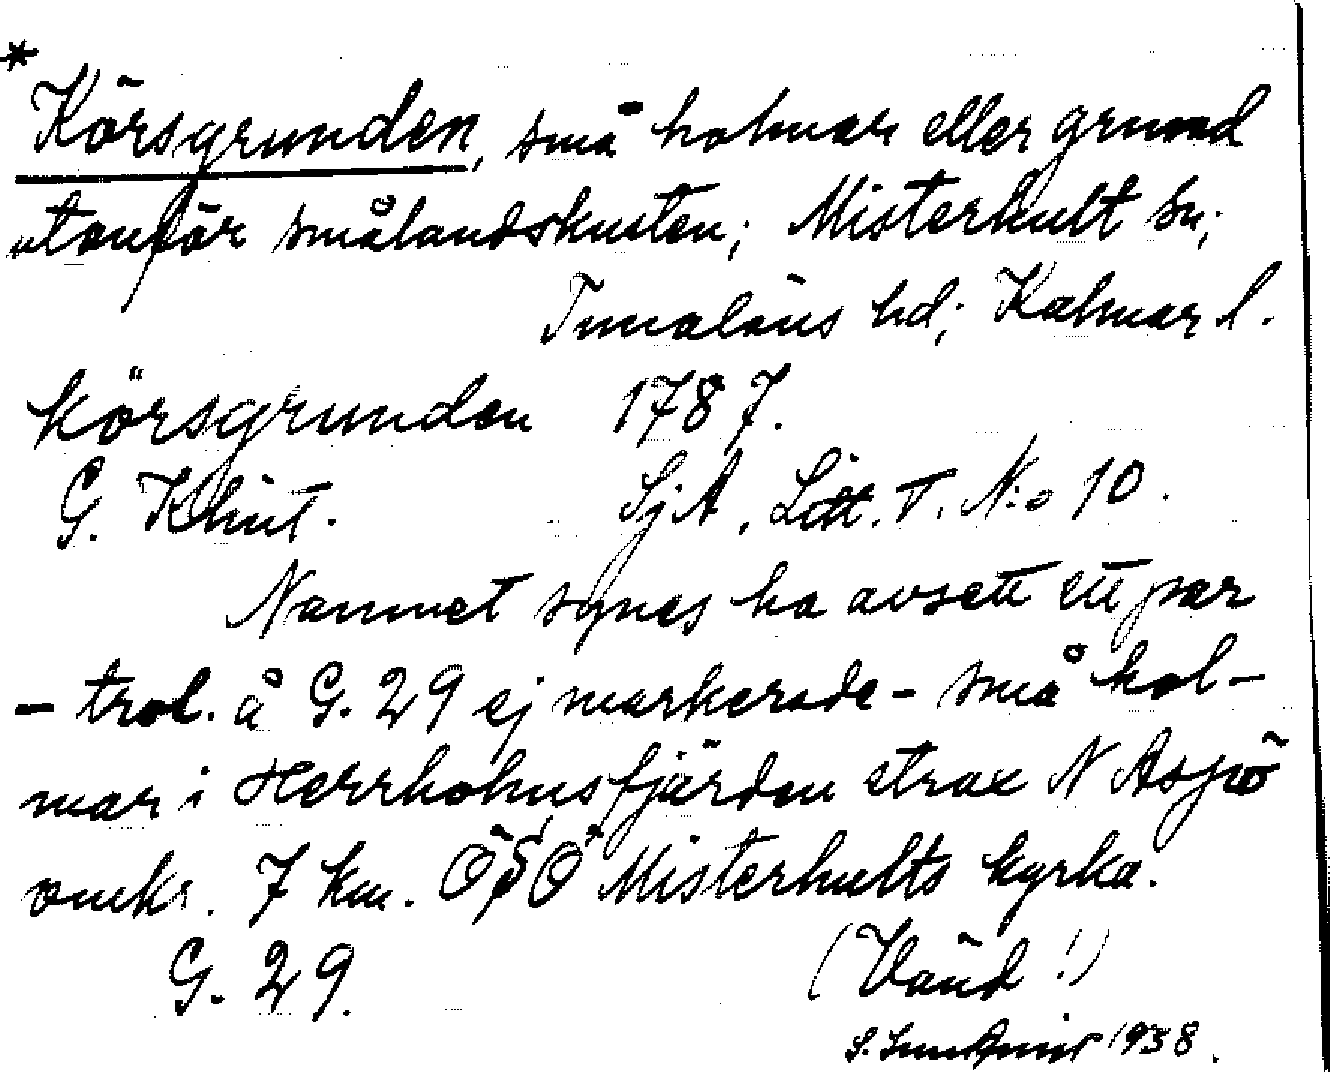 * Körsgrunden, små holmar eller grund
utanför smålandskusten; Misterhult sn;
Tunaläns hd; Kalmar l.
körsgrunden 1787.
G. Klint. SjA, Litt. T. N:o 10.
Namnet synes ha avsett ett par
- trol. å G. 29 ej markerade - små hol-
mar i Herrholmsfjärden strax N Äspö
omkr. 7 km. ÖSÖ Misterhults kyrka.
G. 29. (Vänd!)
S. 1938.